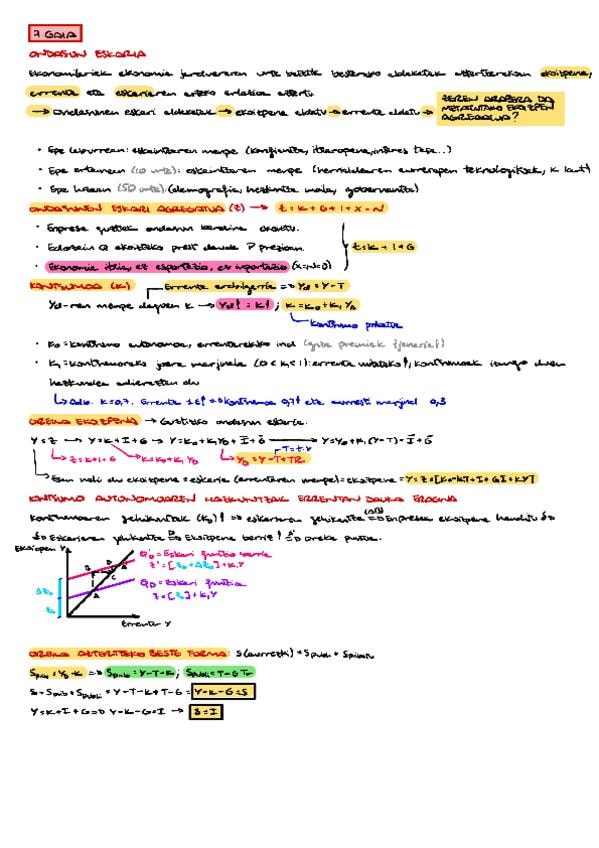 7 GAIA
ONDASUN ESKARIA
Ekonomilariek ekonomia jardueraren urte batetik besterako aldaketak aztertzerakoan ekoizpena,
errenta eta eskariaren arteko erlazioa aztertu.
→ Ondasunen eskari aldaketak → ekoizpena aldatu → errenta aldatu →
ZEREN ARABERA DA
METATUTAKO EKOIZPEN
AGREGATUA?
• Epe laburrean: eskaintzaren menpe (konfiantza, itxaropena, interes tasa...)
• Epe ertainean (10 urte): eskaintzaren menpe (herrialdearen aurrerapen teknologikoak, K kant)
• Epe luzean (50 urte): (demografia, hezkuntza maila, gobernantza)
ONDASUNEN ESKARI AGREGATUA (Z) → Z = K + G + I + X - N
• Enpresa guztiek ondasun berdina ekoiztu.
• Edozein Q ekoizteko prest daude P prezioan.
Z = K + I + G
• Ekonomia itxia, ez esportazio, ez inportazio (X=N=0)
KONTSUMOA (K)
Errenta erabilgarria => Yd = Y - T
Yd-ren menpe dagoen K → Yd↑ = K↑ ; K = K0 + K1 Yd
Kontsumo pribatua
• K0 = kontsumo autonomoa, errentarekiko ind
• K1 = kontsumoreko joera marjinala (0 < K1 < 1): errenta unitateko↑, kontsumoak izango duen
hazkundea adierazten du
↳ Adb. K=0,7. Errenta 1€↑ => kontsumoa 0,7↑ eta aurrezki marjinal 0,3
OREKA EKOIZPENA → Guztizko ondasun eskaria.
Y = Z → Y = K + I + G → Y = K0 + K1 Yd + I + G → Y = K0 + K1 (Y-T) + I + G
Z = K + I + G
K = K0 + K1 Yd
Yd = Y - T + TR
↳ Esan nahi du ekoizpena = eskaria (errentaren menpe) = ekoizpena =
KONTSUMO AUTONOMOAREN HAZKUNTZAK ERRENTAN DAUKA ERAGINA
Kontsumoaren gehikuntzak (K0)↑ => eskariaren gehikuntza => Enpresek ekoizpena handitu
=> Eskariaren gehikuntza => Ekoizpena berriz↑ => oreka puntua.
Ekoizpen Y
Q'D = Eskari funtzio berria
Z' = [Z0 + ΔZ0] + K1Y
QD = Eskari funtzioa
Z = [Z0] + K1Y
ΔZ0
Z0
A
Errenta Y
OREKA AZTERTZEKO BESTE FORMA: S (aurrezki) = Spubli + Spribatu
Spri = Yd - K => Spri = Y - T - K ; Spubl = T - G
S = Sprib + Spubli = Y - T - K + T - G = Y - K - G = S
Y = K + I + G => Y - K - G = I → S = I